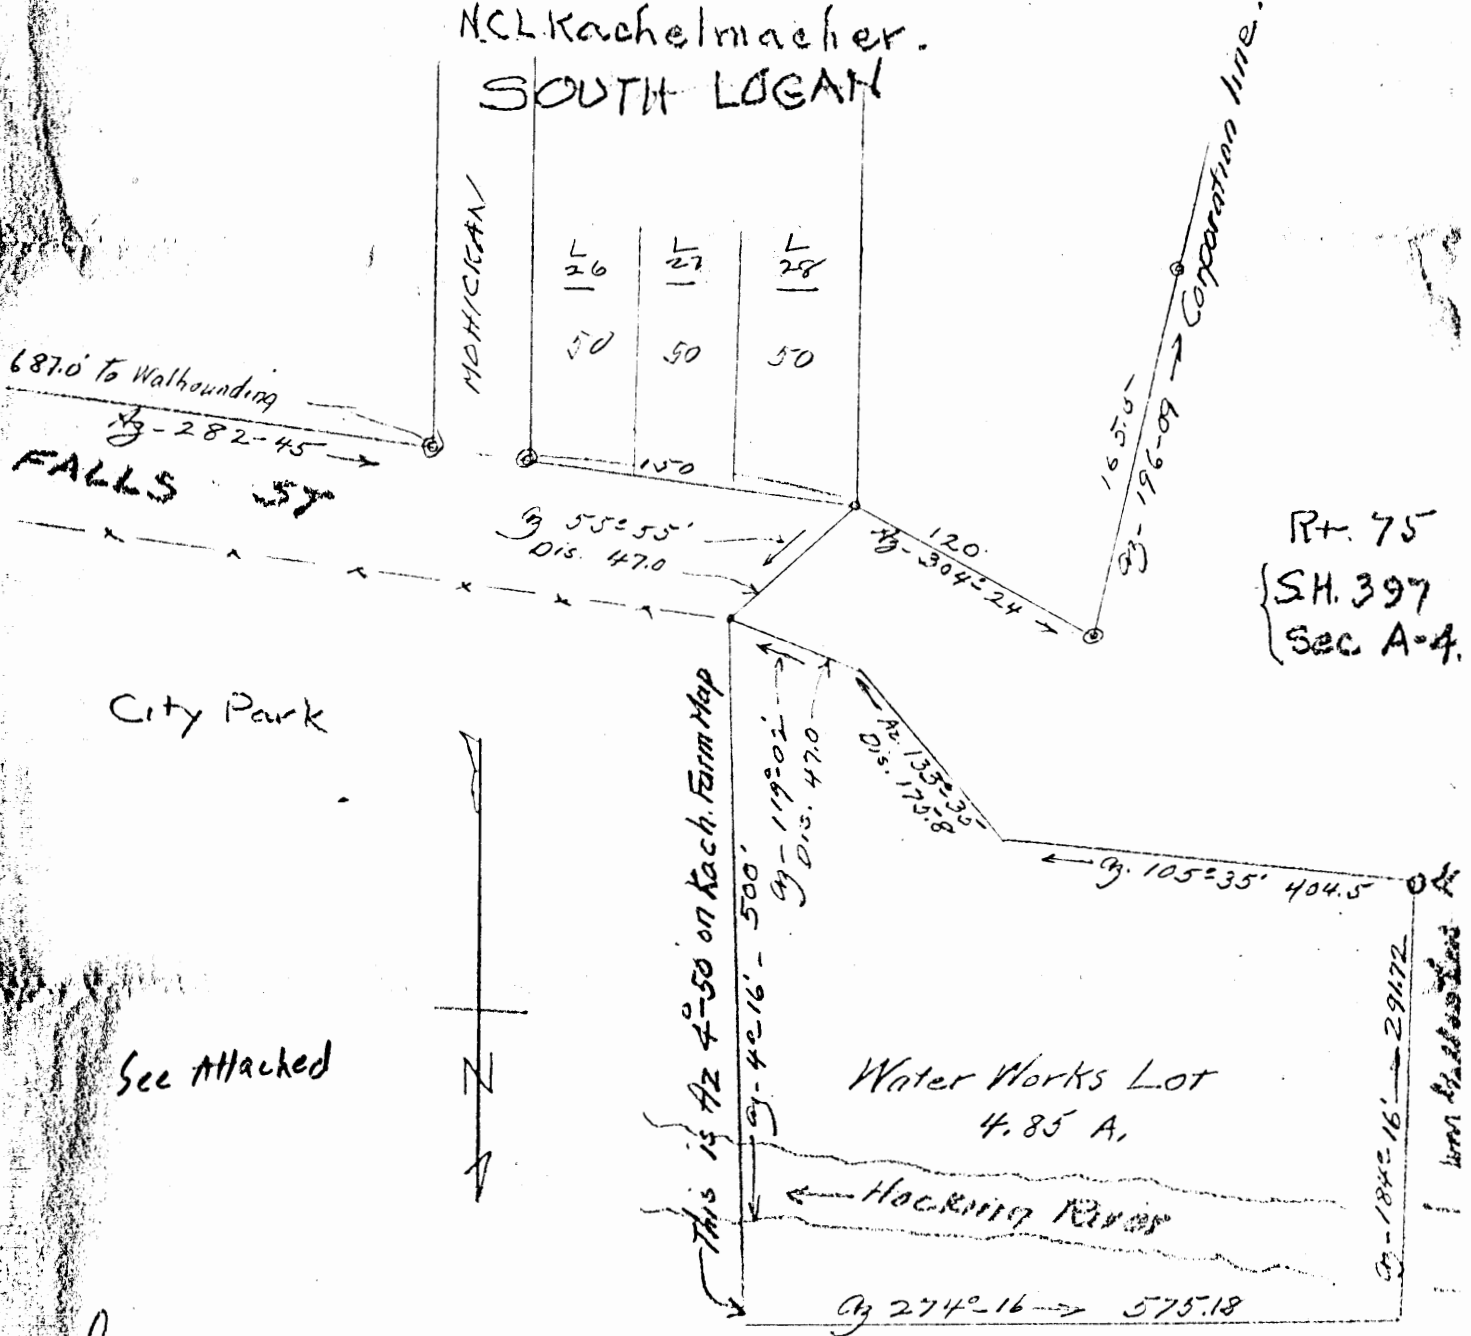 N.C.L. Kachelmacher.
SOUTH LOGAN
Corporation line.
MOHICKAN
L 26
L 27
L 28
50
50
50
687.0' To Walhounding
Az-282-45
FALLS ST
150
Az 55°55'
Dis. 47.0
120.
Az-304°24
165.5
Az-196-09
Rt. 75
S.H. 397
Sec A-4.
City Park
This is Az 4°-50 on Kach. Farm Map
Az-4°16'-500'
Az-119°02'
Dis. 47.0
Az. 133°35'
Dis. 175.8
Az. 105°35' 404.5
See Attached
N
Water Works Lot
4.85 A.
Hocking River
Az-184°16'-291.72
Az 274°-16 575.18